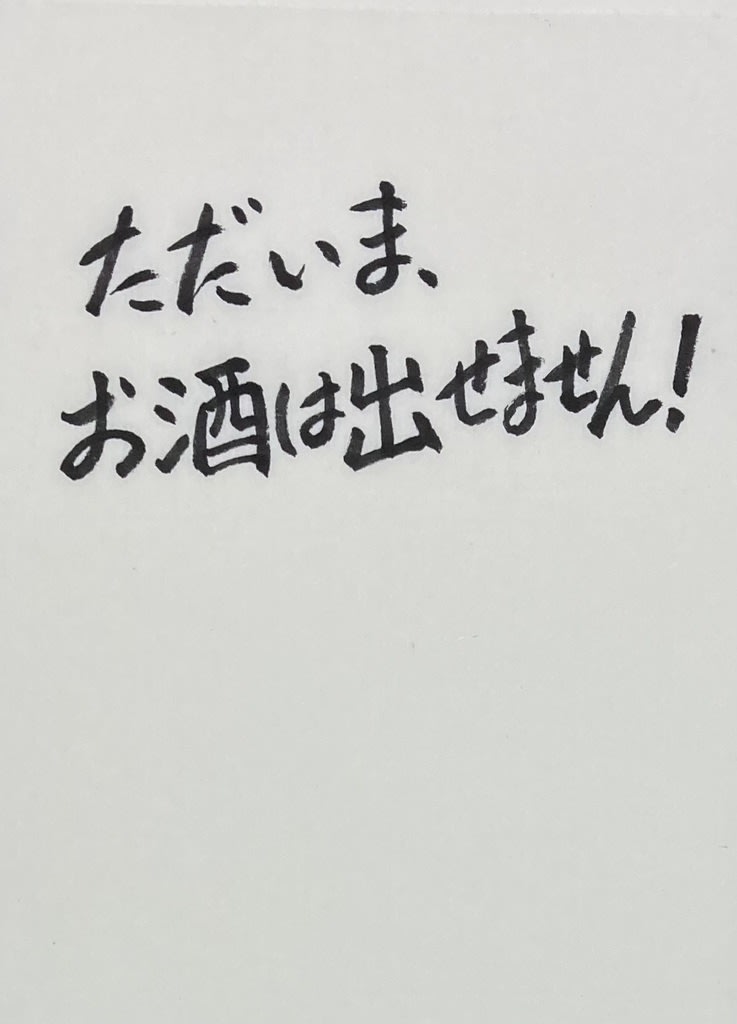 ただいま、
お酒は出せません!